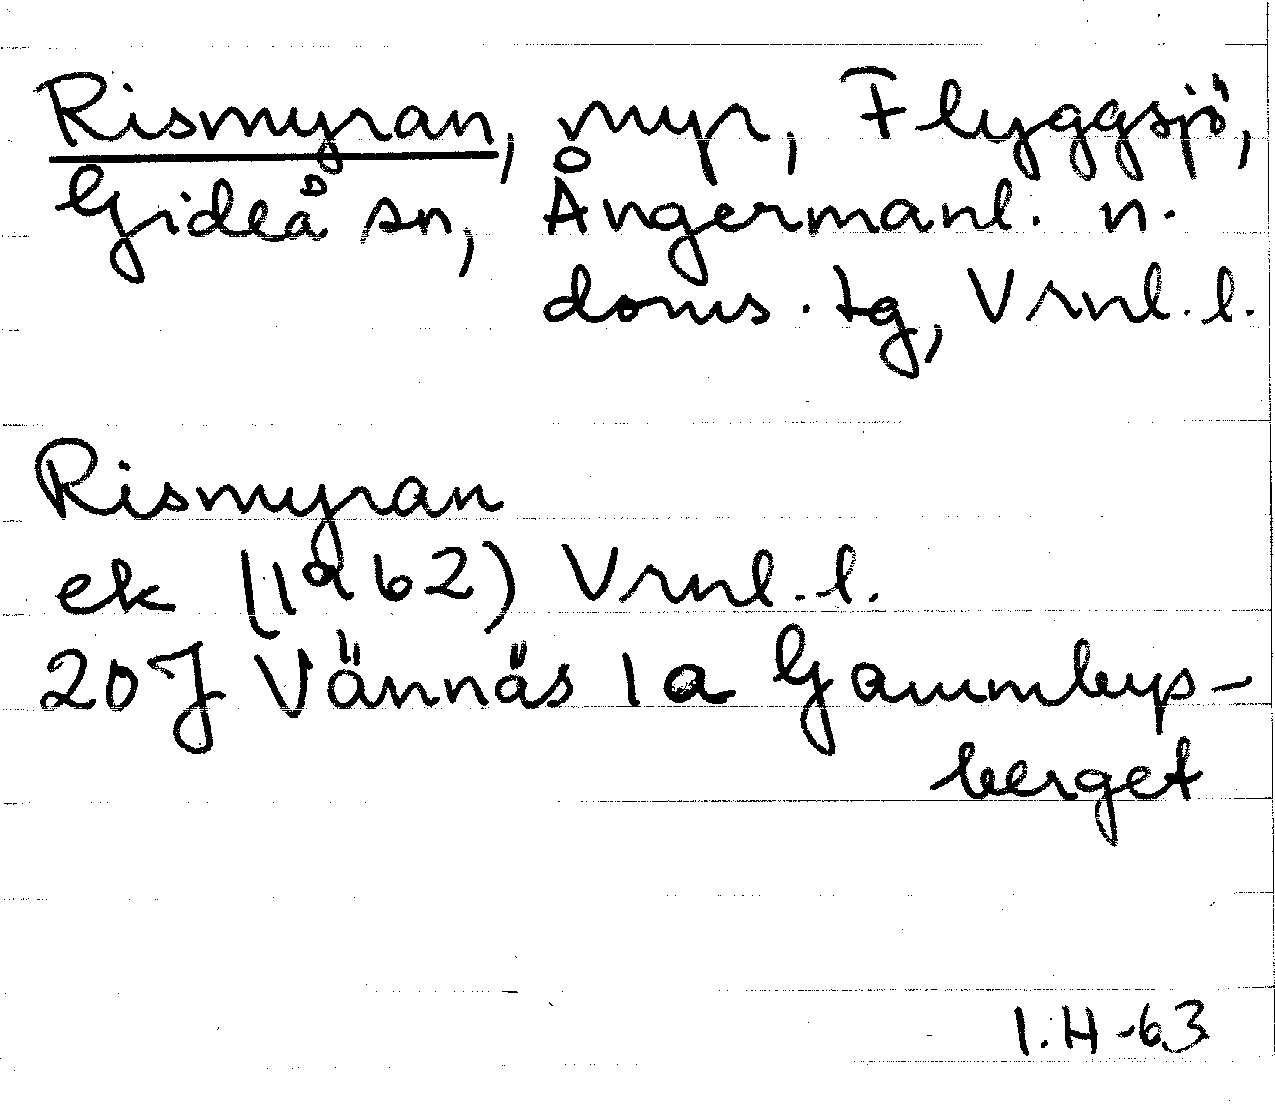 Rismyran, myr, Flyggsjö,
Gideå sn, Ångermanl. n.
doms. tg, Vrnl. l.
Rismyran
ek (1962) Vrnl. l.
20J Vännäs 1a Gammbyns-
berget
I. H -63